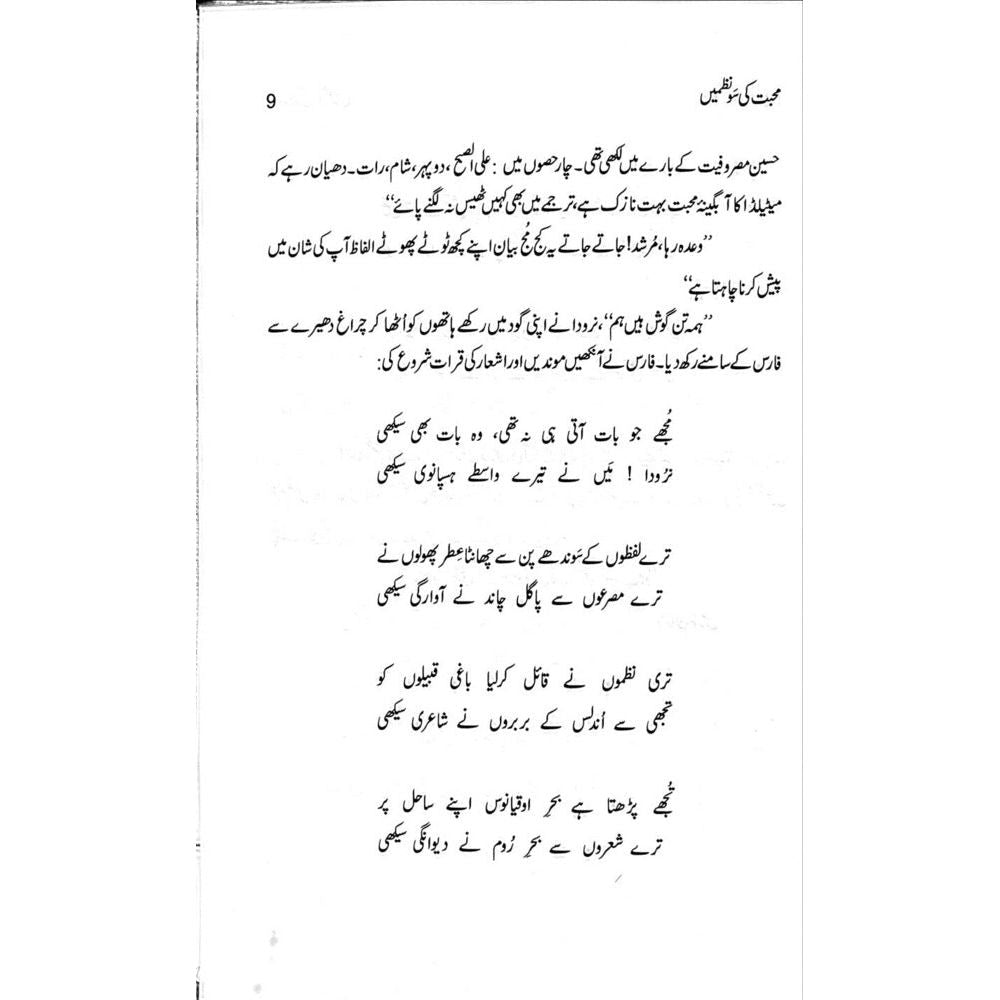 محبت کی سَو نظمیں
9
حسین مصروفیت کے بارے میں لکھی تھی۔ چار حصوں میں : علی الصبح ، دوپہر، شام، رات۔ دھیان رہے کہ
میٹیلڈا کا آبگینۂ محبت بہت نازک ہے، ترجمے میں بھی کہیں ٹھیس نہ لگنے پائے‘‘
’’وعدہ رہا، مُرشد! جاتے جاتے یہ کج مُج بیان اپنے کچھ ٹوٹے پھوٹے الفاظ آپ کی شان میں
پیش کرنا چاہتا ہے‘‘
’’ہمہ تن گوش ہیں ہم‘‘، نرودا نے اپنی گود میں رکھے ہاتھوں کو اُٹھا کر چراغ دھیرے سے
فارس کے سامنے رکھ دیا۔ فارس نے آنکھیں موندیں اور اشعار کی قرات شروع کی:
مُجھے جو بات آتی ہی نہ تھی، وہ بات بھی سیکھی
نرُودا ! مَیں نے تیرے واسطے ہسپانوی سیکھی
ترے لفظوں کے سَوندھے پن سے چھانٹا عِطر پھولوں نے
ترے مصرعوں سے پاگل چاند نے آوارگی سیکھی
تری نظموں نے قائل کرلیا باغی قبیلوں کو
تجھی سے اُندلس کے بربروں نے شاعری سیکھی
تُجھے پڑھتا ہے بحرِ اوقیانوس اپنے ساحل پر
ترے شعروں سے بحرِ رُوم نے دیوانگی سیکھی